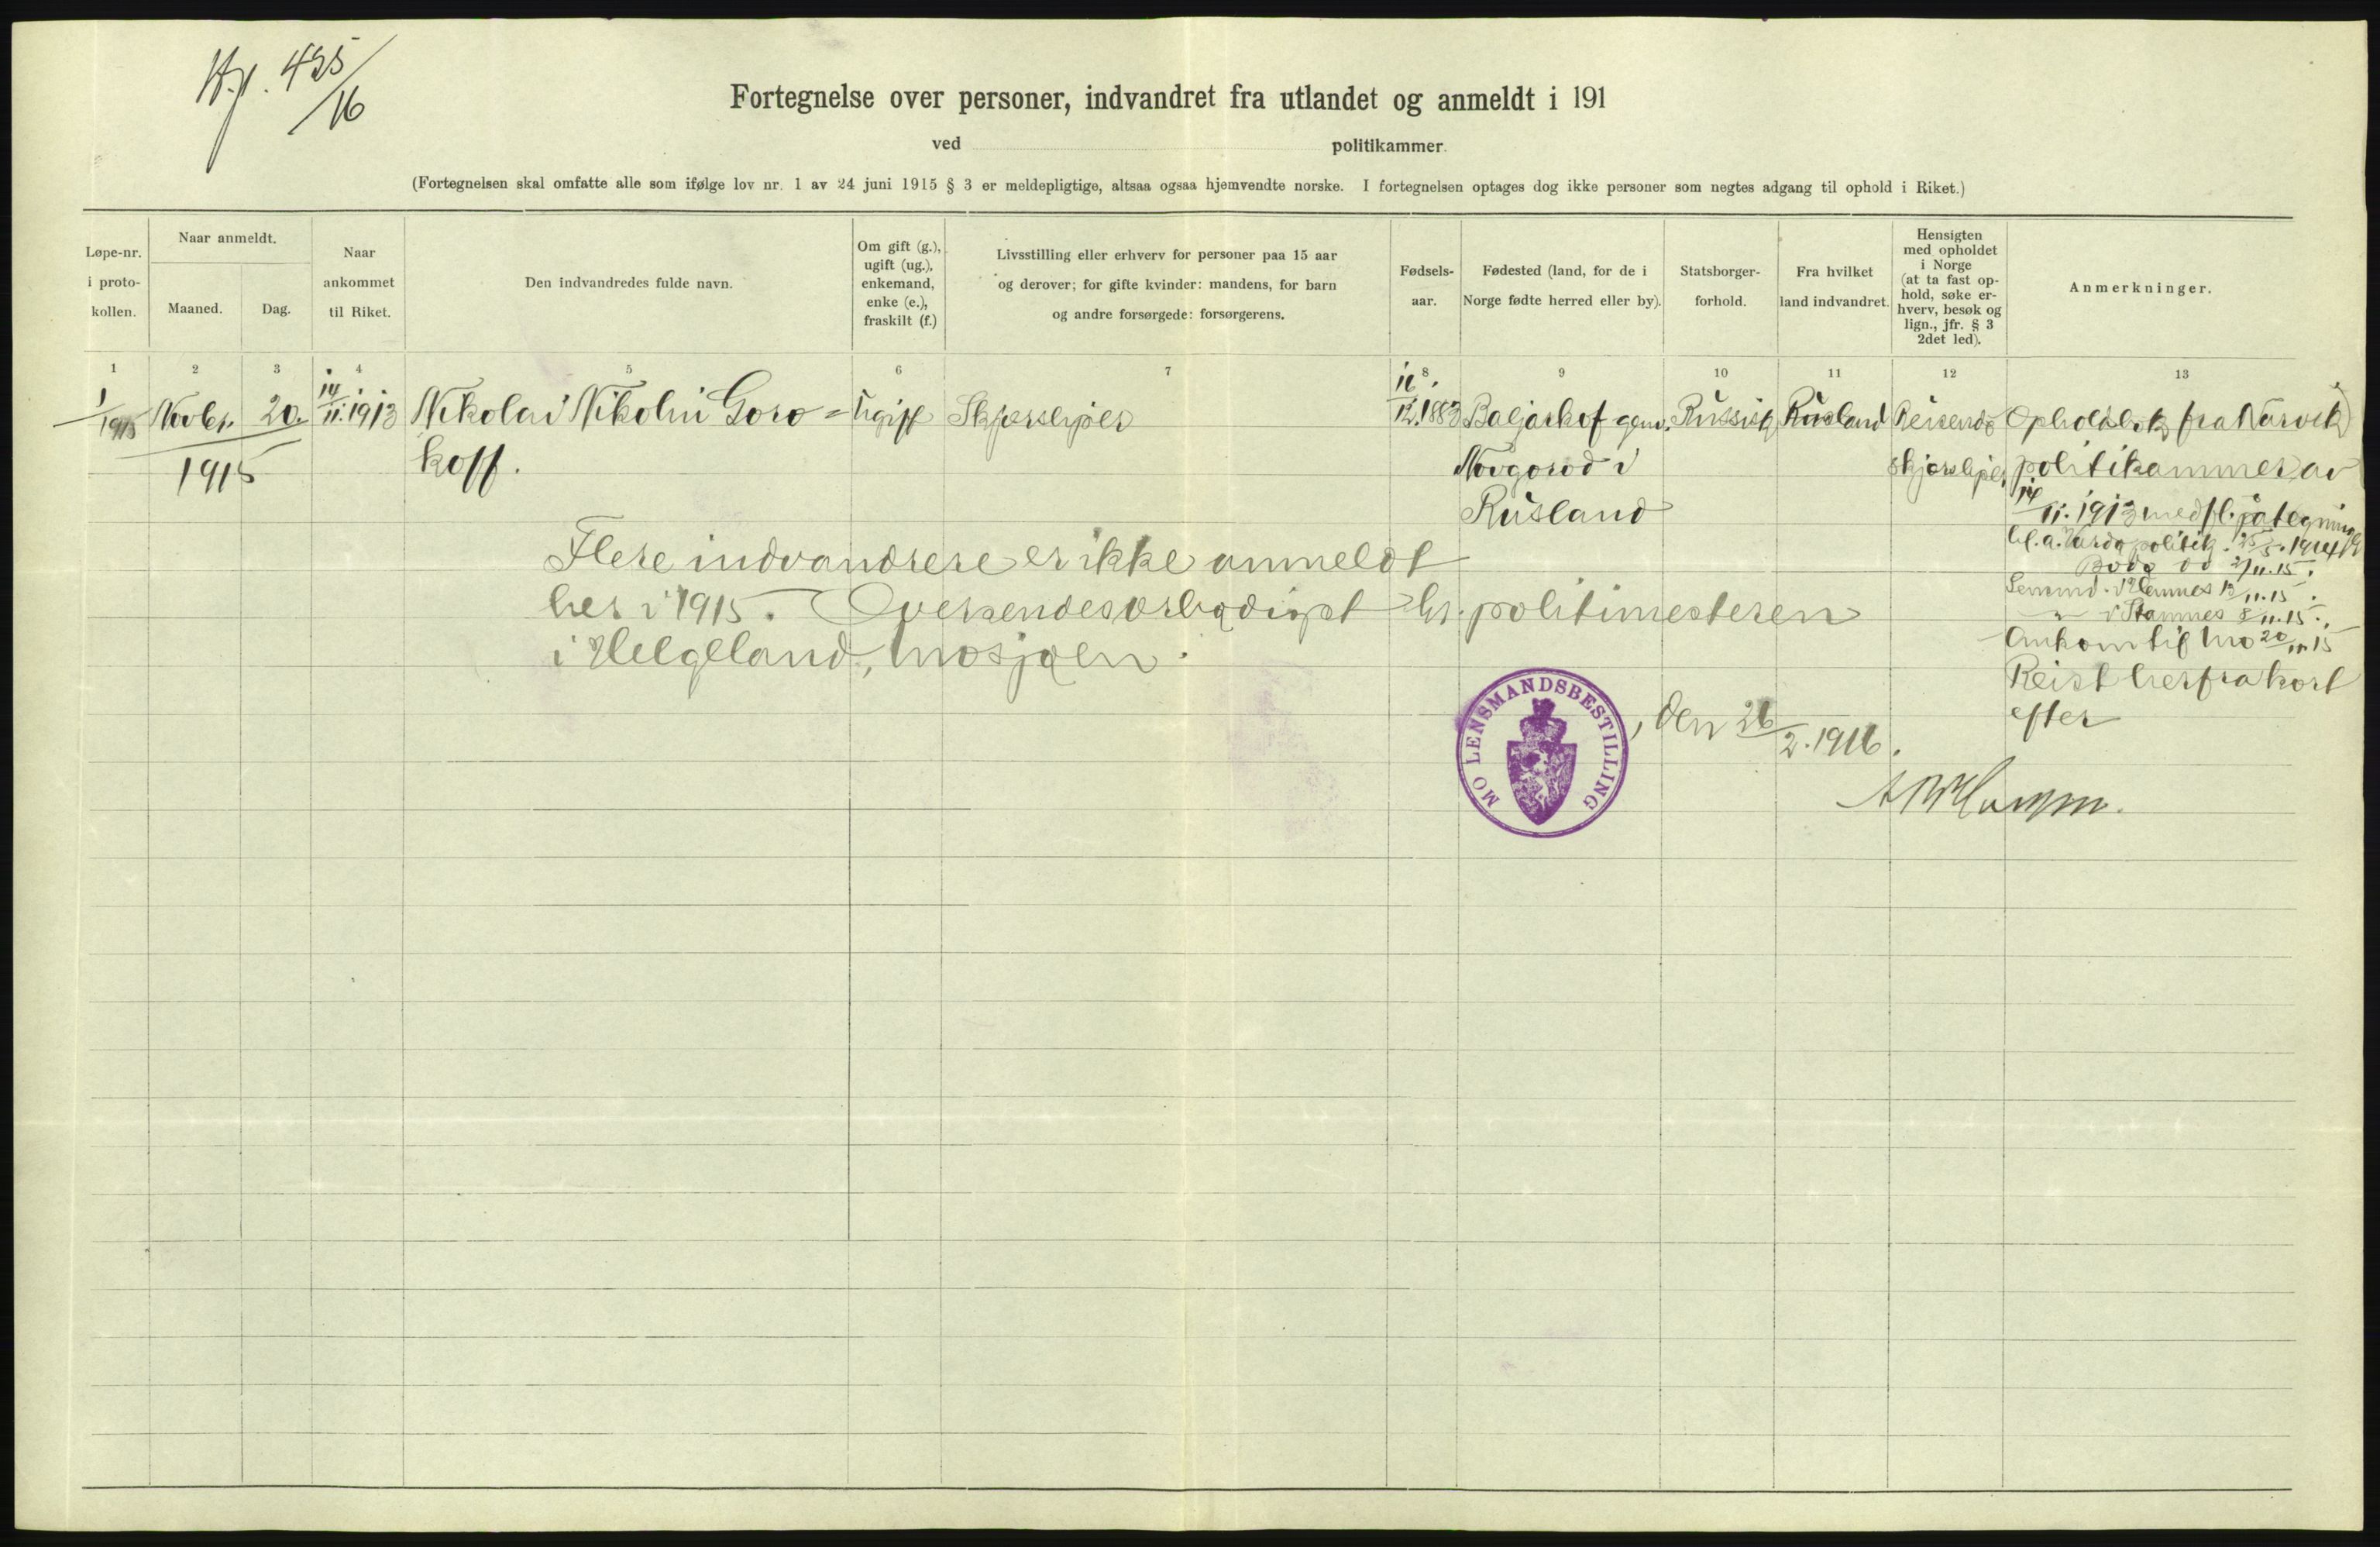 435/16
Fortegnelse over personer, indvandret fra utlandet og anmeldt i 191
ved politikammer.
(Fortegnelsen skal omfatte alle som ifølge lov nr. 1 av 24 juni 1915 § 3 er meldepligtige, altsaa ogsaa hjemvendte norske. I fortegnelsen optages dog ikke personer som negtes adgang til ophold i Riket.)
Løpe-nr. i proto- kollen.
Naar anmeldt.
Maaned.
Dag.
Naar ankommet til Riket.
Den indvandredes fulde navn.
Om gift (g.), ugift (ug.), enkemand, enke (e.), fraskilt (f.)
Livsstilling eller erhverv for personer paa 15 aar og derover; for gifte kvinder: mandens, for barn og andre forsørgede: forsørgerens.
Fødsels- aar.
Fødested (land, for de i Norge fødte herred eller by).
Statsborger- forhold.
Fra hvilket land indvandret.
Hensigten med opholdet i Norge (at ta fast op- hold, søke er- hverv, besøk og lign., jfr. § 3 2det led).
Anmerkninger.
1 2 3 4 5 6 7 8 9 10 11 12 13
1/1915 Novbr. 20. 14/11.1913 Nikolai Nikolin Goro= Ugift Skjærsliper 16/12.1883 Baljarkof gem. Russisk Rusland Reisende Opholdsbok fra Narvik
1915 koff. Novgorod i skjærsliper politikammer av
Rusland 14/11.1913 med fl. påtegning
bl. a. Vardø politik. 25/5.1914
Flere indvandrere er ikke anmeldt
Bodø do 2/11.15.
her i 1915. Oversendes ærbødigst hr. politimesteren
Lensmd. i Hemnes 13/11.15.
" i Stamnes 8/11.15.
i Helgeland, Mosjøen.
Ankom til Mo 20/11.15
Reist herfra kort
efter
MO LENSMANDSBESTILLING
, den 26/2.1916.